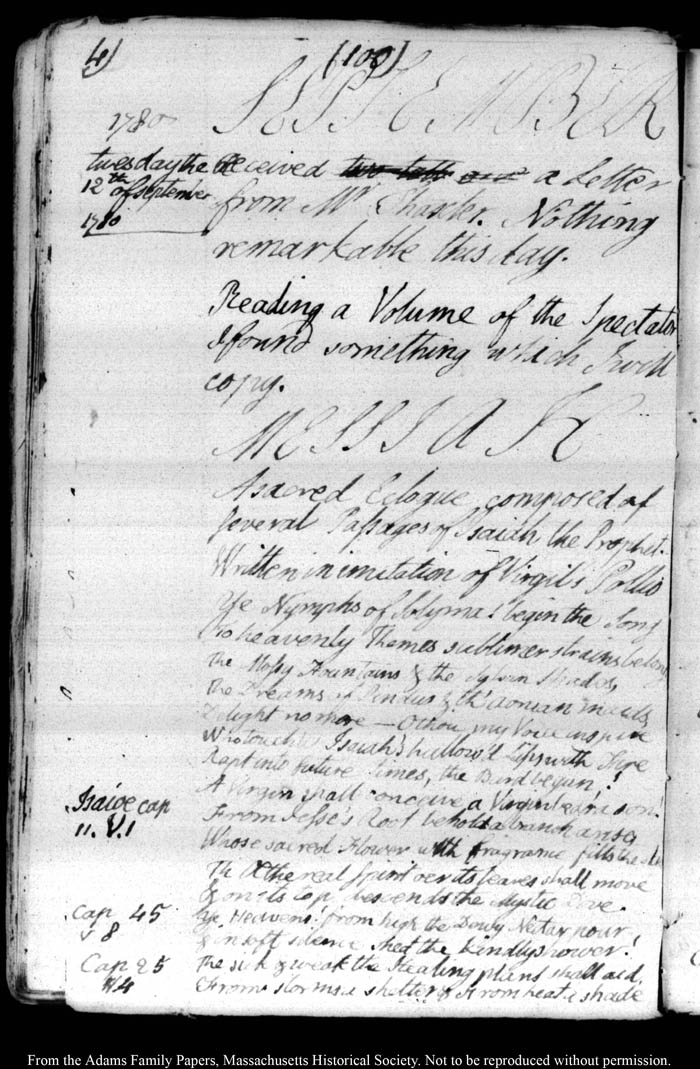 4)
(108)
1780
SEPTEMBER
tuesday the
12th of September
1780
Received a Letter
from Mr Nothing
remarkable this day.
Reading a Volume of the Spectator
I found something which I will
copy.
MESSIAH
A sacred Eclogue composed of
several Passages of Isaiah the Prophet.
Written in imitation of Virgil's Pollio
Ye Nymphs of Solyma! begin the Song
To heavenly Themes sublimer strains belong
The Mossy Fountains & the Sylvan Shades,
The Dreams of Pindus & th' Aonian maids
Delight no more — O thou my Voice inspire
Who touch'd Isaiah's hallow'd Lips with Fire
Rapt into future times, the Bard begun!
A Virgin shall conceive, a Virgin bear a son!
From Jesse's Root behold a branch arise
Isaiae cap
11. V. 1
Whose sacred Flower with fragrance fills the
Th Æthereal Spirit oer its leaves shall move
& on its top descends the Mystic Dove.
Cap 45
v 8
Ye Heavens! from high the Dewy Nectar pour
& in soft silence shed the kindly shower!
Cap 25
V4
The sick & weak the Healing plant shall aid,
From storms a shelter & from heat a shade
From the Adams Family Papers, Massachusetts Historical Society. Not to be reproduced without permission.